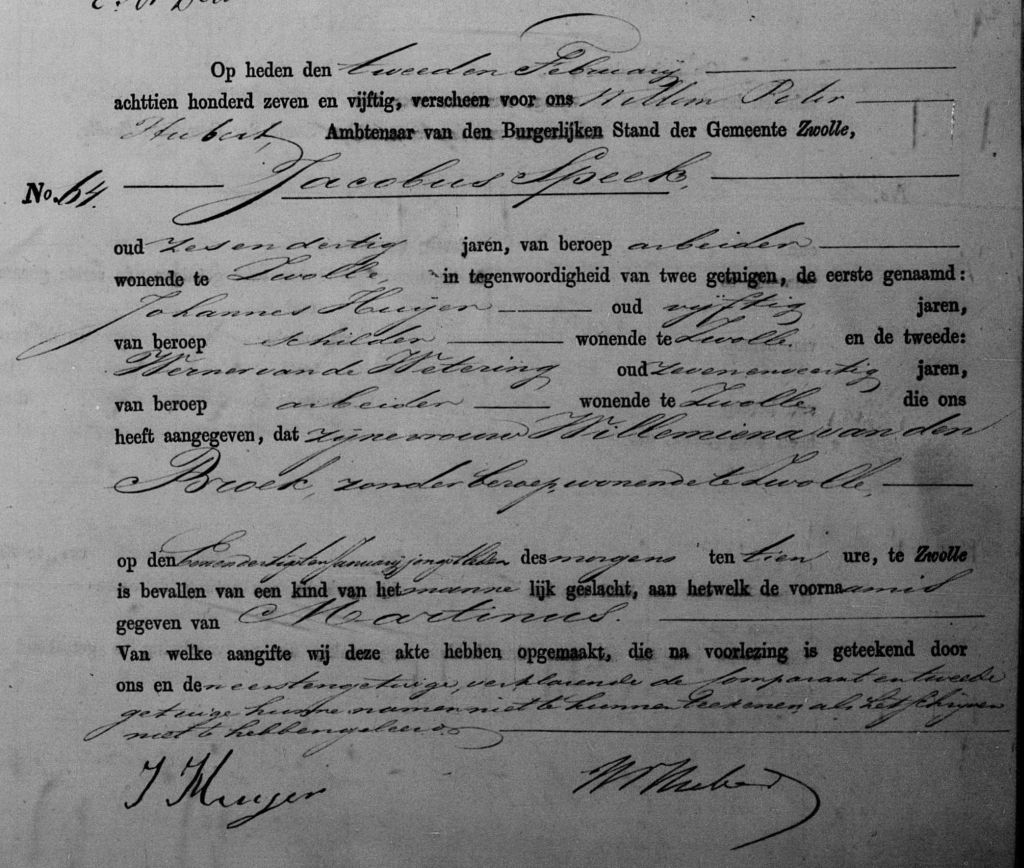 Op heden den tweeden Februarij
achttien honderd zeven en vijftig, verscheen voor ons Willem Peter
Hubert, Ambtenaar van den Burgerlijken Stand der Gemeente Zwolle,
No. 64. Jacobus Speek,
oud zesendertig jaren, van beroep arbeider
wonende te Zwolle, in tegenwoordigheid van twee getuigen, de eerste genaamd:
Johannes Huijer oud vijftig jaren,
van beroep schilder wonende te Zwolle. en de tweede:
Werner van de Wetering oud zevenenveertig jaren,
van beroep arbeider wonende te Zwolle, die ons
heeft aangegeven, dat zijne vrouw Willemiena van den
Broek, zonder beroep, wonende te Zwolle,
op den eenendertigsten Januarij jongstleden des morgens ten tien ure, te Zwolle
is bevallen van een kind van het manne lijk geslacht, aan hetwelk de voornaam is
gegeven van Martinus.
Van welke aangifte wij deze akte hebben opgemaakt, die na voorlezing is geteekend door
ons en den eersten getuige, verklarende de Comparant en tweede
getuige hunne namen niet te kunnen teekenen, als het schrijven
niet te hebben geleerd.
J Huijer